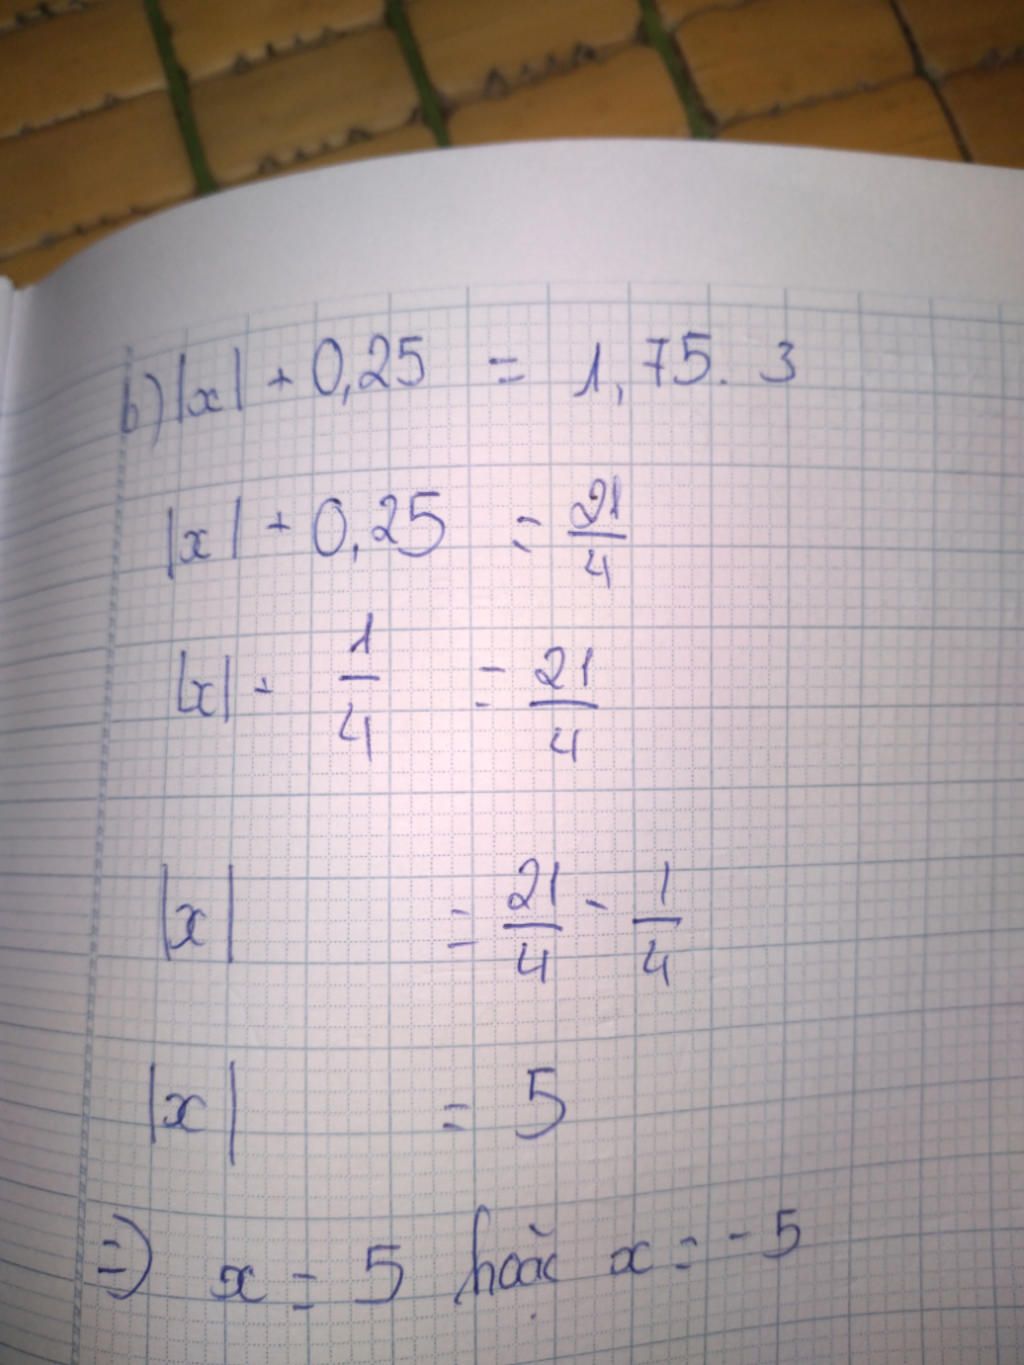 b) |x| + 0,25 = 1,75. 3
|x| + 0,25 = 21/4
|x| + 1/4 = 21/4
|x| = 21/4 - 1/4
|x| = 5
=> x = 5 hoặc x = -5